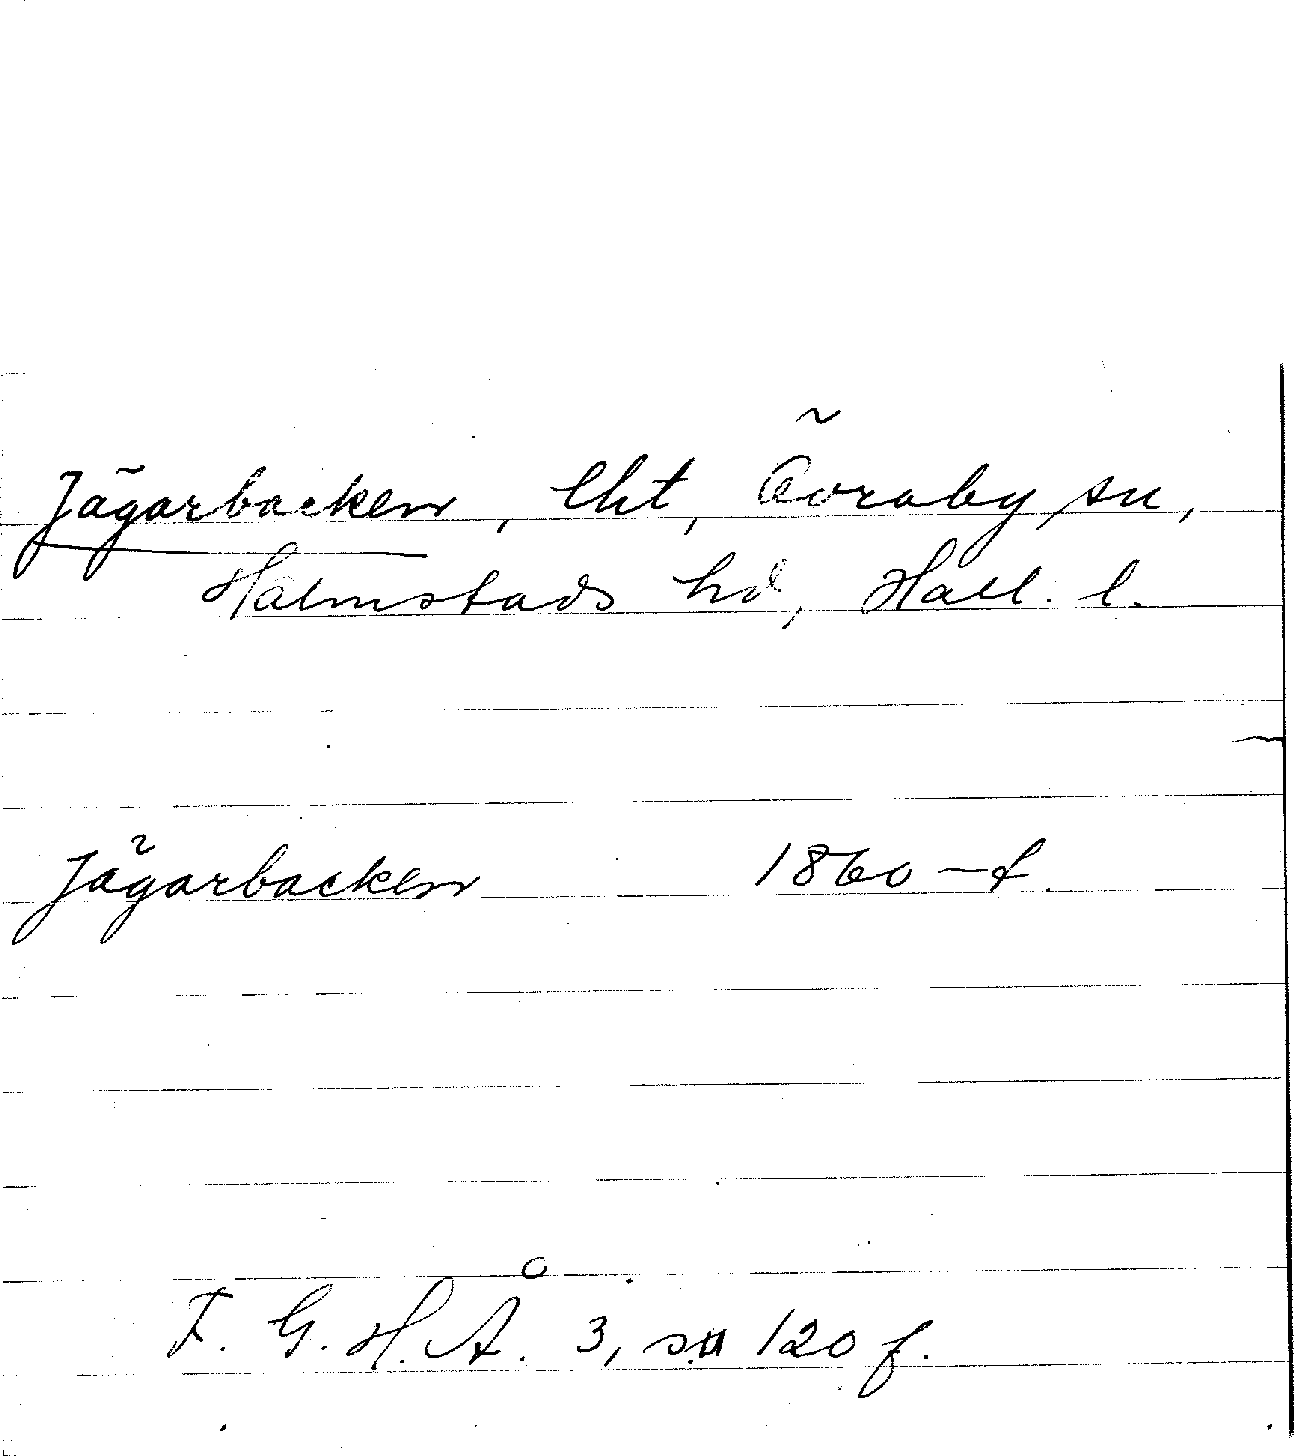 Jägarbacken, lht, Övraby sn,
Halmstads hd, Hall. l.
Jägarbacken 1860-t
F. G. H. Å. 3, s. 120 f.